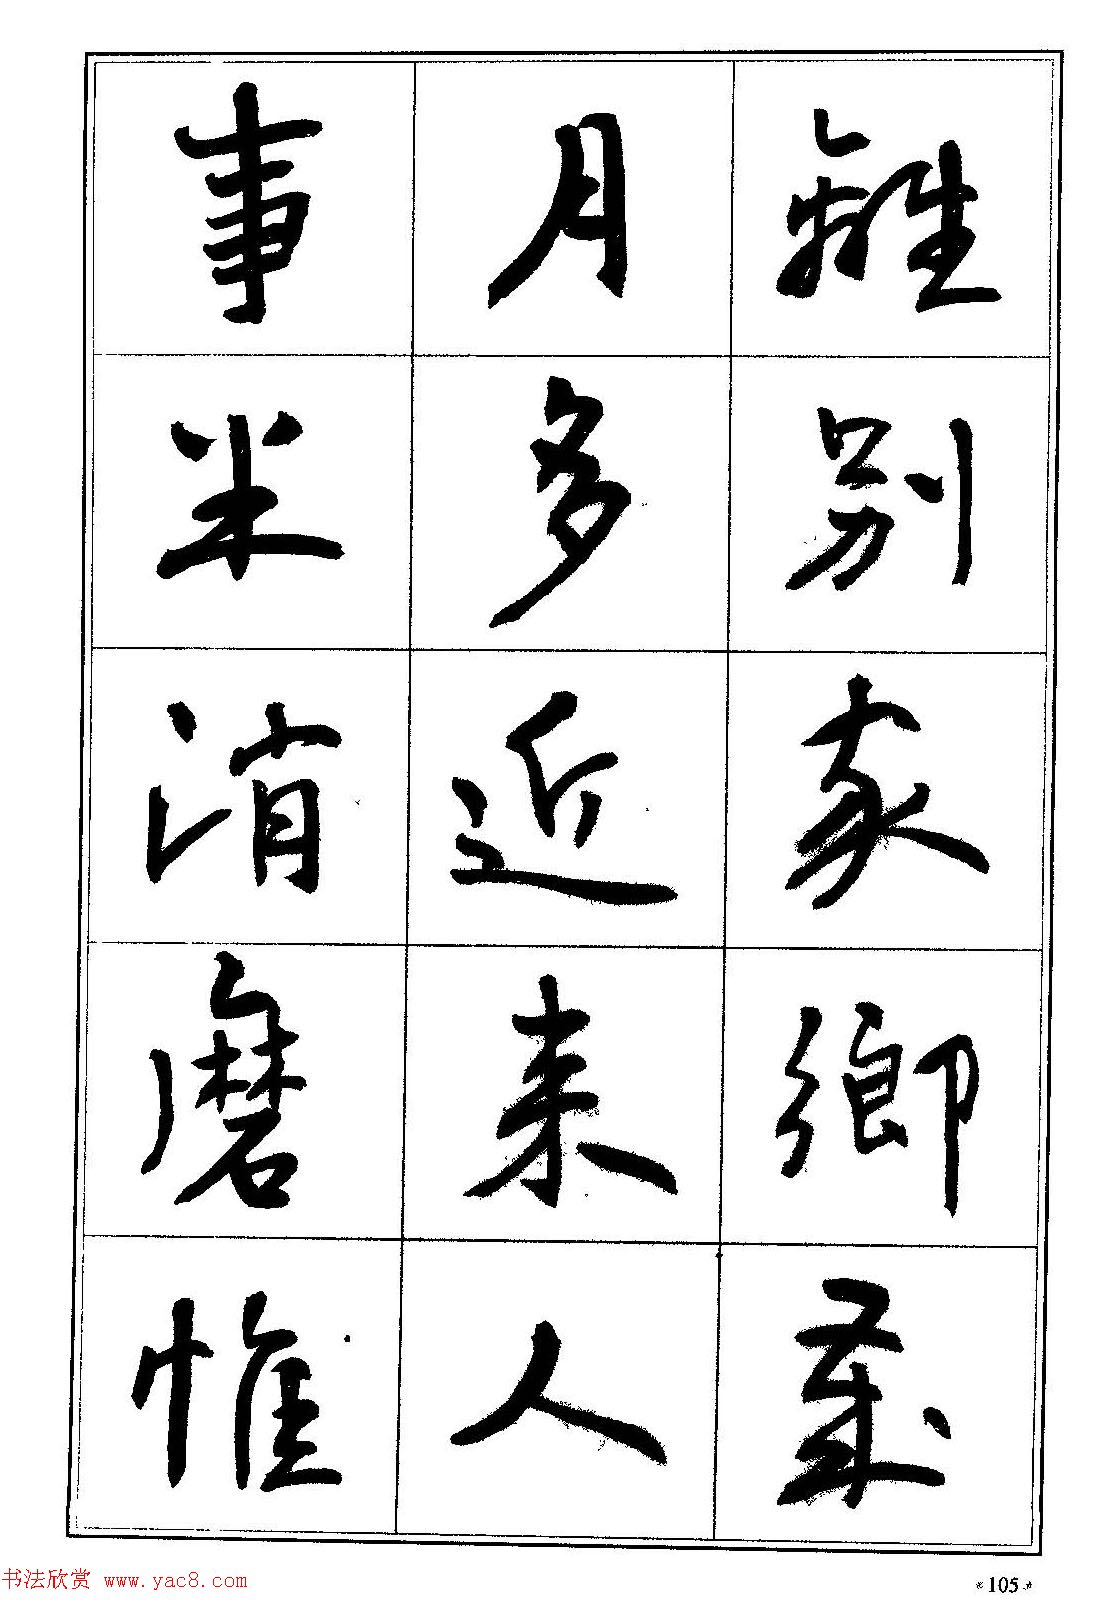 離別家鄉歲
月多近来人
事半消磨惟
书法欣赏 www.yac8.com
105